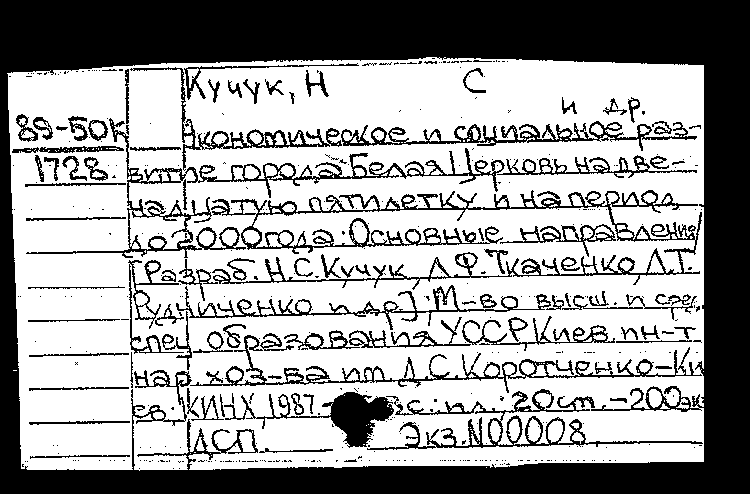 Кучук, Н С
и др.
89-50К Экономическое и социальное раз-
1728. витие города Белая Церковь на две-
надцатую пятилетку и на период
до 2000 года: Основные направления/
[Разраб. Н.С.Кучук, Л.Ф.Ткаченко, Л.Т.
Рудниченко и др.]; М-во высш. и сред.
спец образования УССР, Киев. ин-т
нар. хоз-ва им. Д.С.Коротченко-Ки
ев: КИНХ, 1987.- с: ил.; 20см.-200экз
ДСП. Экз.N00008.